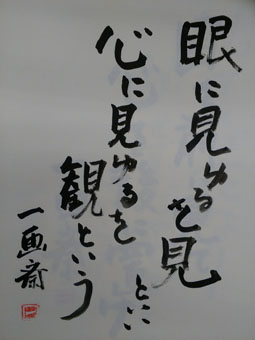 眼に見ゆるを見とい
心に見ゆるを
観という
一画斎